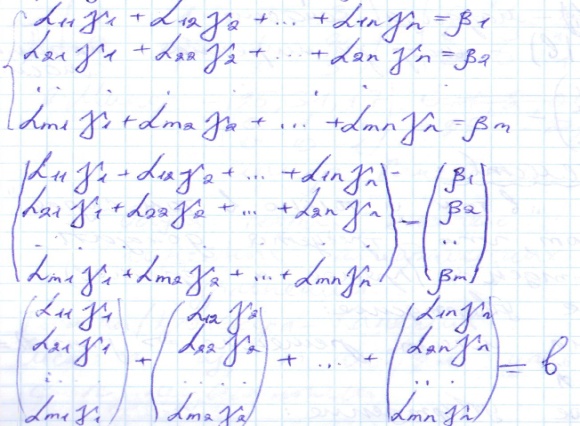 α₁₁γ₁ + α₁₂γ₂ + ... + α₁ₙγₙ = β₁
α₂₁γ₁ + α₂₂γ₂ + ... + α₂ₙγₙ = β₂
. . . . . . .
αₘ₁γ₁ + αₘ₂γ₂ + ... + αₘₙγₙ = βₘ
(α₁₁γ₁ + α₁₂γ₂ + ... + α₁ₙγₙ) (β₁)
(α₂₁γ₁ + α₂₂γ₂ + ... + α₂ₙγₙ) = (β₂)
(. . . . . . .) (..)
(αₘ₁γ₁ + αₘ₂γ₂ + ... + αₘₙγₙ) (βₘ)
(α₁₁γ₁) (α₁₂γ₂) (α₁ₙγₙ)
(α₂₁γ₁) + (α₂₂γ₂) + ... + (α₂ₙγₙ) = b
(. . . .) (. . . .) (. . .)
(αₘ₁γ₁) (αₘ₂γ₂) (αₘₙγₙ)